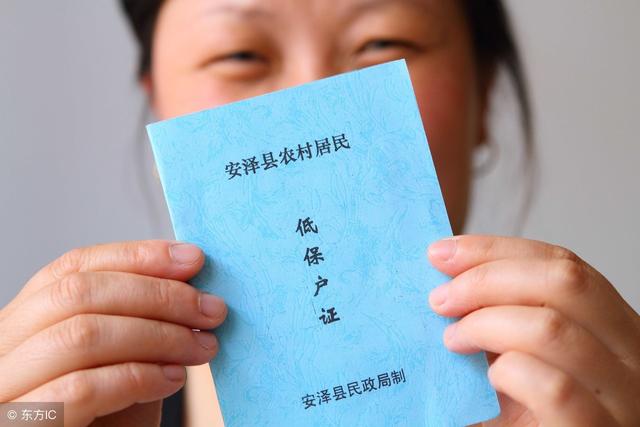 安泽县农村居民
低保户证
安泽县民政局制
© 东方IC